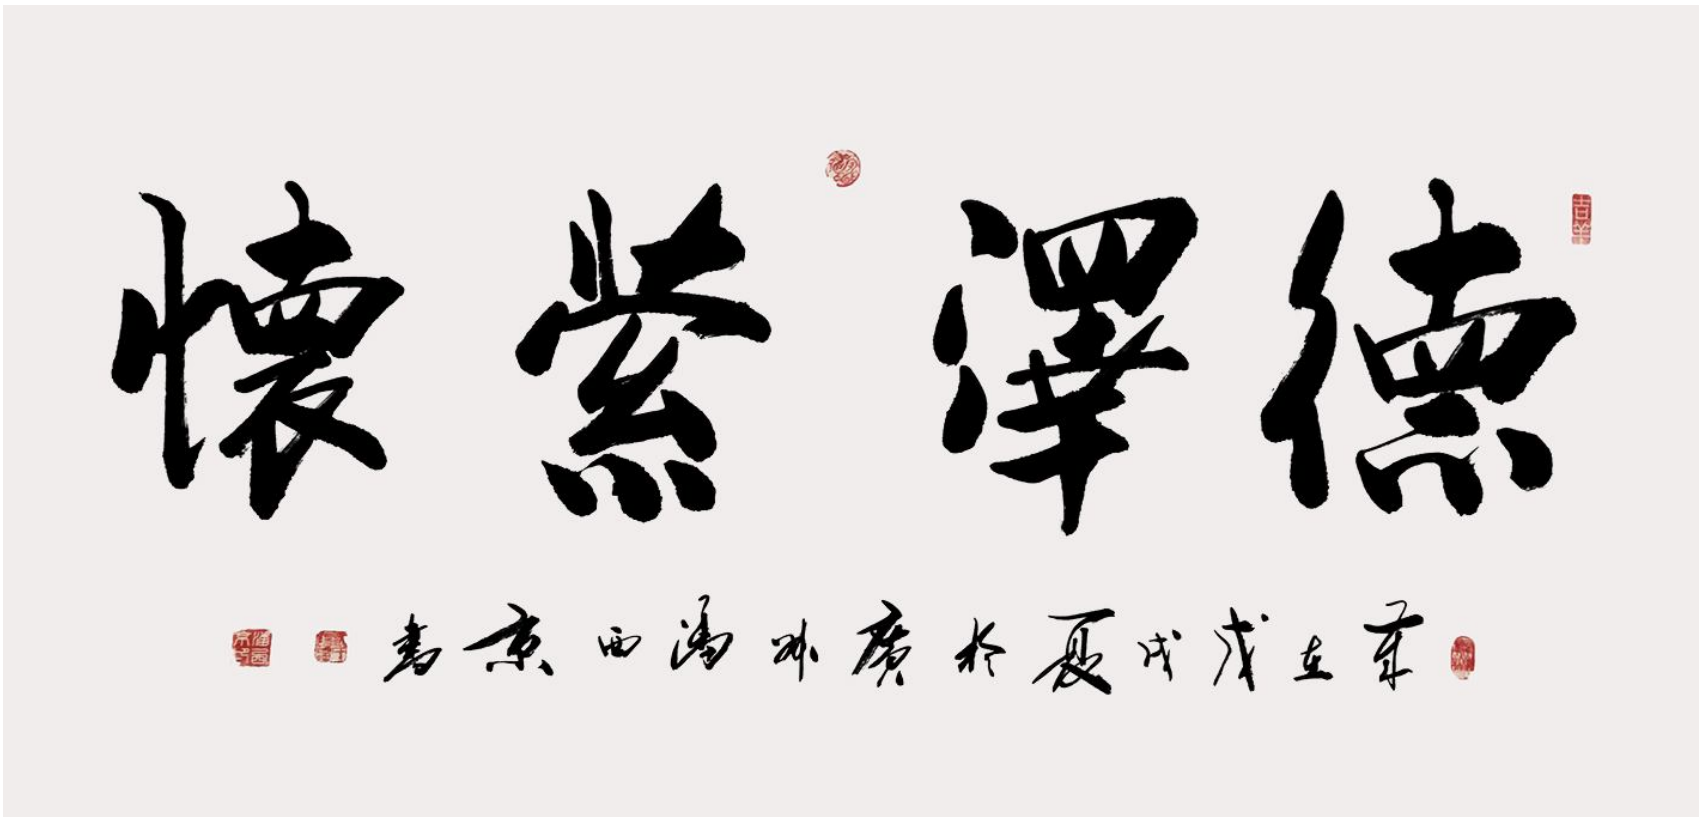 德澤縈懷
歲在戊戌夏於廣州潘西京書
吉羊